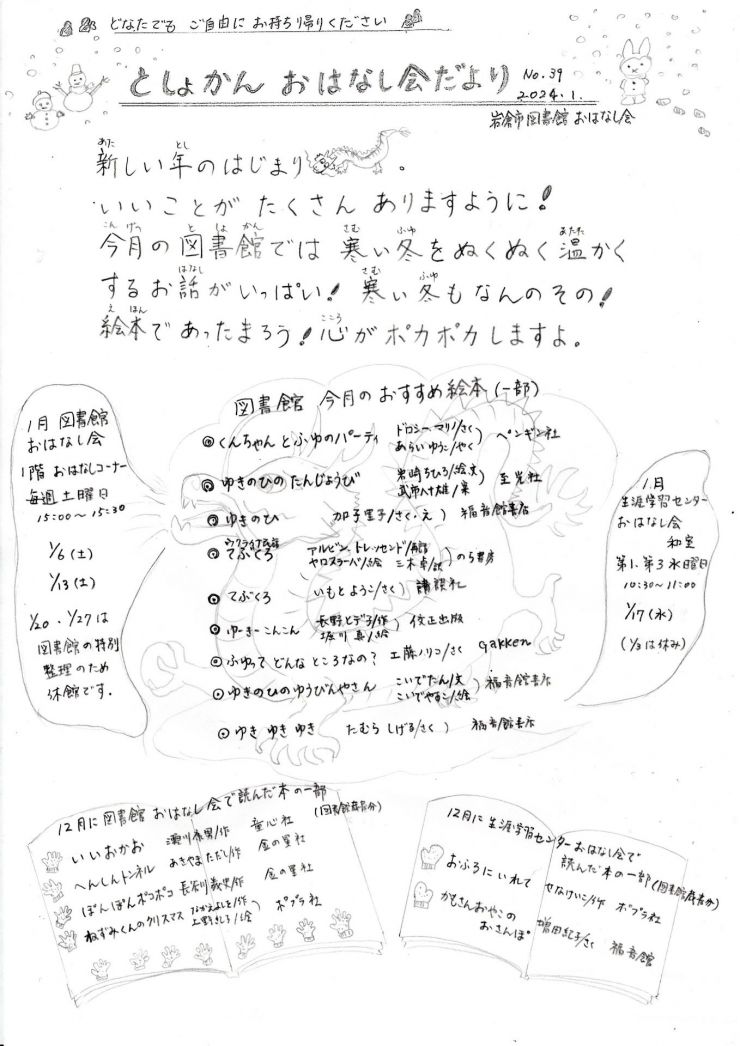 どなたでも ご自由に お持ち帰りください
としょかん おはなし会だより No.39
2024.1.
岩倉市図書館 おはなし会
新しい年のはじまり 。
あた とし
いいことが たくさん ありますように!
こんげつ としょかん さむ ふゆ あたた
今月の図書館では 寒い冬をぬくぬく温かく
はなし さむ ふゆ
するお話がいっぱい! 寒い冬もなんのその!
えほん こころ
絵本であったまろう!心がポカポカしますよ。
図書館 今月のおすすめ絵本(一部)
◎くんちゃんとふゆのパーティ ドロシー・マリノ/さく あらいゆうこ/やく) ペンギン社
◎ゆきのひのたんじょうび 岩崎ちひろ/絵・文 武市八十雄/案) 至光社
◎ゆきのひ 加子里子/さく・え) 福音館書店
ウクライナ民話
◎てぶくろ アルビン.トレッセンド/再話 ヤロスラーバ/絵 三木卓/訳) のら書房
◎てぶくろ いもとようこ/さく) 講談社
◎ゆーきーこんこん 長野ヒデ子/作 堀川真/絵) 佼正出版
◎ふゆって どんなところなの? 工藤ノリコ/さく Gakken
◎ゆきのひのゆうびんやさん こいでたん/文 こいでやすこ/絵) 福音館書店
◎ゆき ゆき ゆき たむらしげる/さく) 福音館書店
1月 図書館
おはなし会
1階 おはなしコーナー
毎週土曜日
15:00〜15:30
1/6(土)
1/13(土)
1/20・1/27は
図書館の特別
整理のため
休館です。
1月
生涯学習センター
おはなし会
和室
第1.第3水曜日
10:30〜11:00
1/17(水)
(1/3は休み)
12月に図書館 おはなし会で読んだ本の一部
(図書館蔵書分)
いいおかお 瀬川康男/作 童心社
へんしんトンネル あきやまただし/作 金の星社
ぽんぽんポコポコ 長谷川義史/作 金の星社
ねずみくんのクリスマス なかえよしを/作 上野紀子/絵) ポプラ社
12月に生涯学習センターおはなし会で
読んだ本の一部(図書館蔵書分)
おふろにいれて せなけいこ/作 ポプラ社
かもさんおやこの
おさんぽ 増田紀子/さく 福音館